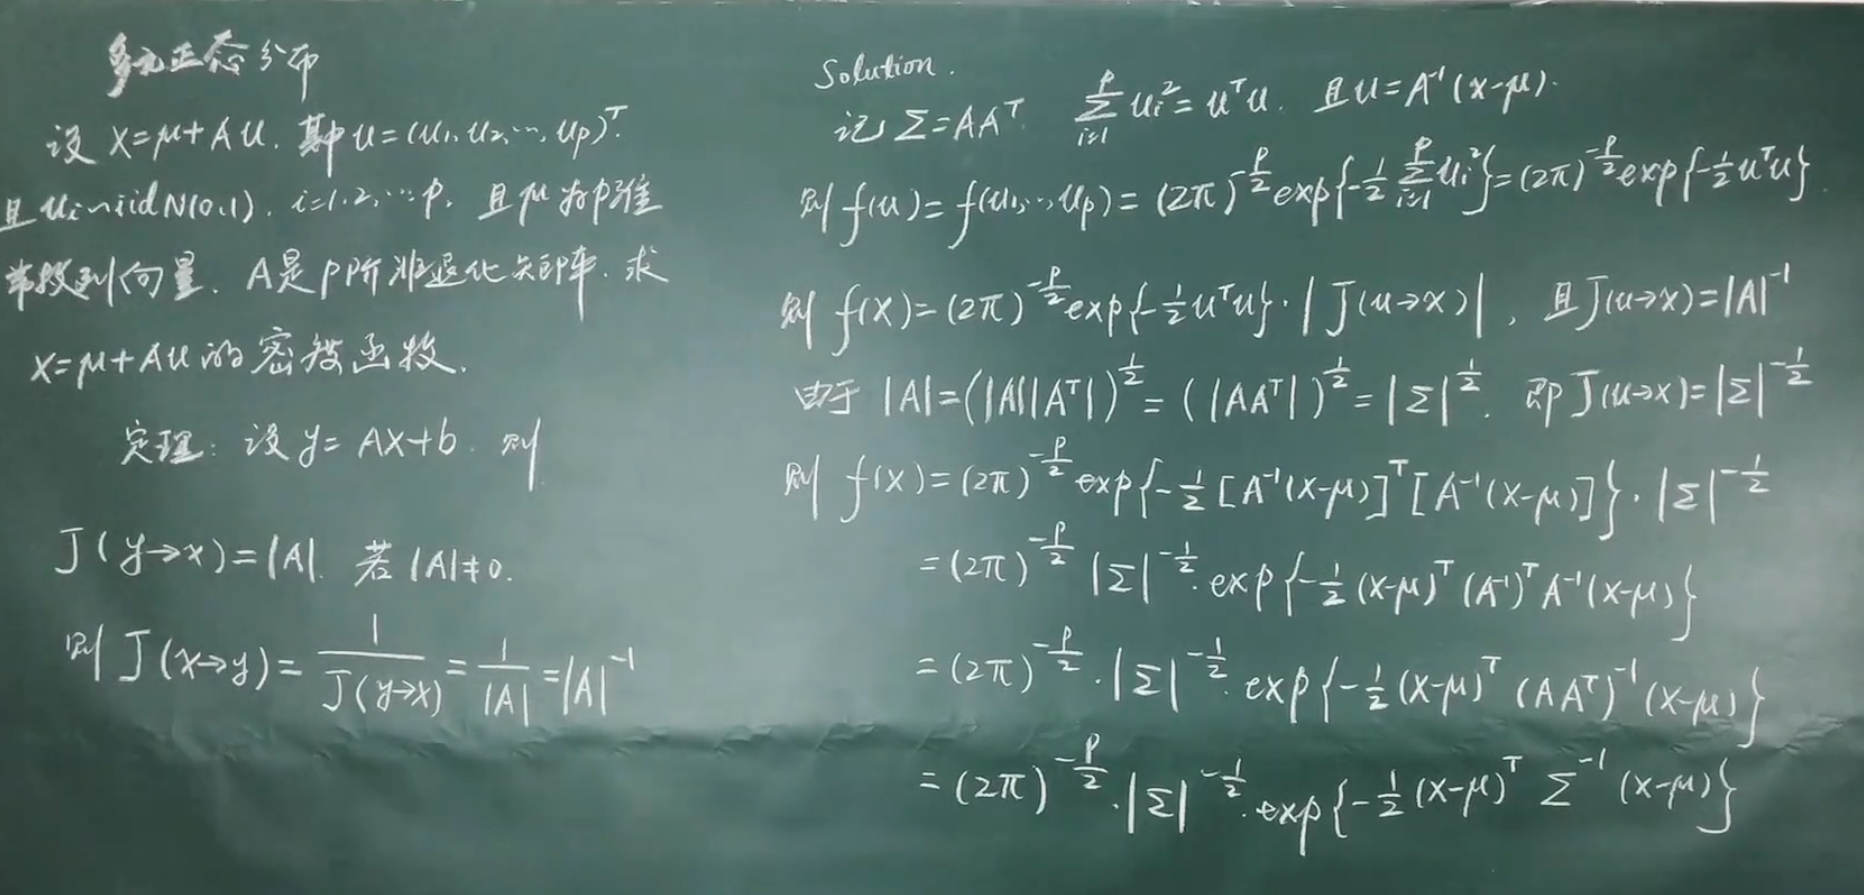 多元正态分布
设 X=μ+Au. 其中 u=(u₁,u₂,…,uₚ)ᵀ.
且 uᵢ~iidN(0,1). i=1,2,…p. 且μ为p维
常数列向量. A是p阶非退化矩阵. 求
X=μ+Au的密度函数.
定理: 设 y=AX+b. 则
J(y→x)=|A|. 若|A|≠0.
则 J(x→y)=\frac{1}{J(y→x)}=\frac{1}{|A|}=|A|^{-1}
Solution.
记Σ=AAᵀ \sum_{i=1}^{p}u_i^2=uᵀu. 且u=A^{-1}(x-μ).
则f(u)=f(u₁,…,uₚ)=(2π)^{-\frac{p}{2}}exp{-\frac{1}{2}\sum_{i=1}^{p}u_i^2}=(2π)^{-\frac{p}{2}}exp{-\frac{1}{2}uᵀu}.
则f(x)=(2π)^{-\frac{p}{2}}exp{-\frac{1}{2}uᵀu}·|J(u→x)|, 且J(u→x)=|A|^{-1}
由于|A|=(|A||Aᵀ|)^{\frac{1}{2}}=(|AAᵀ|)^{\frac{1}{2}}=|Σ|^{\frac{1}{2}}. 即J(u→x)=|Σ|^{-\frac{1}{2}}
则f(x)=(2π)^{-\frac{p}{2}}exp{-\frac{1}{2}[A^{-1}(x-μ)]ᵀ[A^{-1}(x-μ)]}·|Σ|^{-\frac{1}{2}}
=(2π)^{-\frac{p}{2}}|Σ|^{-\frac{1}{2}}·exp{-\frac{1}{2}(x-μ)ᵀ(A^{-1})ᵀA^{-1}(x-μ)}
=(2π)^{-\frac{p}{2}}·|Σ|^{-\frac{1}{2}}·exp{-\frac{1}{2}(x-μ)ᵀ(AAᵀ)^{-1}(x-μ)}
=(2π)^{-\frac{p}{2}}·|Σ|^{-\frac{1}{2}}·exp{-\frac{1}{2}(x-μ)ᵀΣ^{-1}(x-μ)}